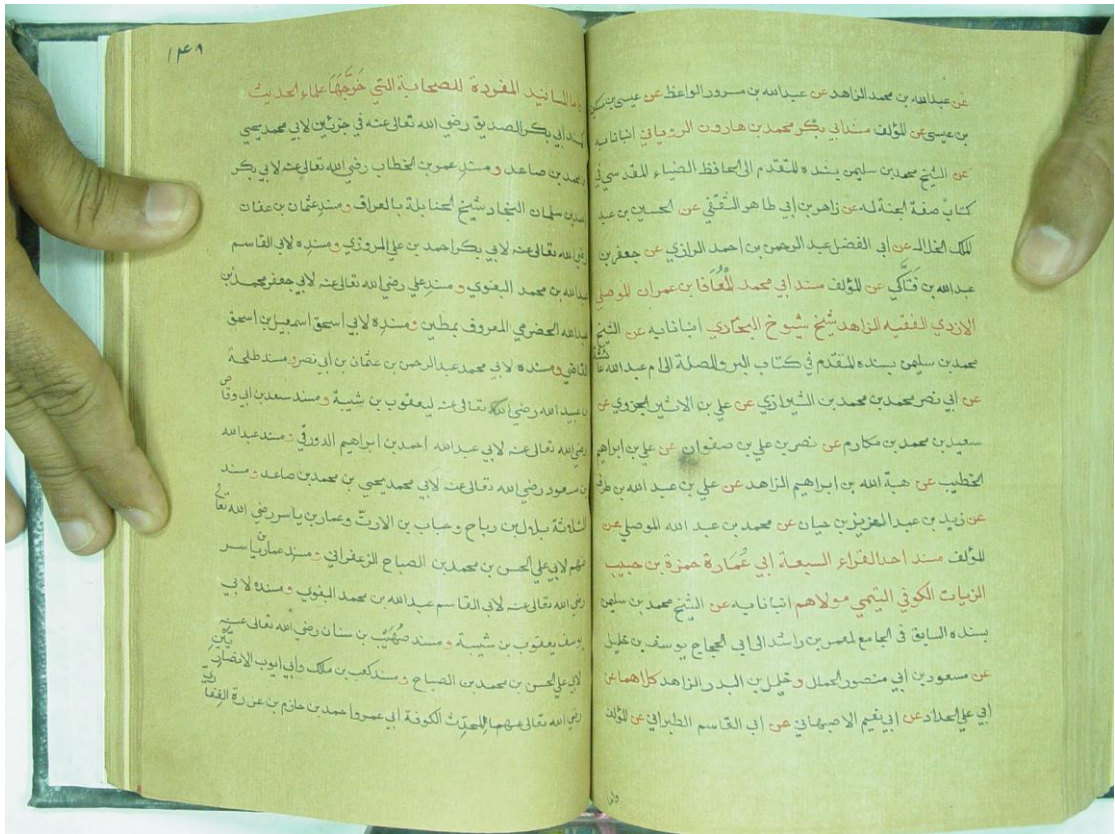 عن عبدالله بن محمد الزاهد عن عبدالله بن مسرور الواعظ عن عيسى بن مسكين
بن عيسى عن المؤلف مسند ابي بكر محمد بن هارون الروياني انبانا به
عن الشيخ محمد بن سليمن بسنده المتقدم الى الحافظ الضياء المقدسي في
كتاب صفة الجنة له عن زاهر بن ابي طاهر الثقفي عن الحسين بن عبد
الملك الخلال عن ابي الفضل عبد الرحمن بن احمد الرازي عن جعفر بن
عبدالله بن فَنّاكي عن المؤلف مسند ابي محمد المُعَافا بن عمران الموصلي
الازدي الفقيه الزاهد شيخ شيوخ البخاري انبانا به عن الشيخ
محمد بن سليمن بسنده المتقدم في كتاب البر والصلة الى ام عبد الله عائشة
عن ابي نصر محمد بن محمد بن الشيرازي عن علي بن الاثير الجزري عن
سعيد بن محمد بن مكارم عن نصر بن علي بن صفوان عن علي بن ابراهيم
الخطيب عن هبة الله بن ابراهيم الزاهد عن علي بن عبد الله بن طوق
عن زيد بن عبد العزيز بن حيان عن محمد بن عبد الله الموصلي عن
المؤلف مسند احد القراء السبعة ابي عُمَارة حمزة بن حبيب
الزيات الكوفي التيمي مولاهم انبانا به عن الشيخ محمد بن سليمن
بسنده السابق في الجامع لمعمر بن راشد الى ابي الحجاج يوسف بن خليل
عن مسعود بن ابي منصور الجمال و خليل بن البدر الزاهد كلاهما عن
ابي علي الحداد عن ابي نعيم الاصبهاني عن ابي القاسم الطبراني عن المؤلف
واما
١٤٨
واما المسانيد المفردة للصحابة التي خَرَّجَهَا علماء الحديث
كمسند ابي بكر الصديق رضي الله تعالى عنه في جزئين لابي محمد يحيى
بن محمد بن صاعد و مسند عمر بن الخطاب رضي الله تعالى عنه لابي بكر
احمد بن سلمان النجاد شيخ الحنابلة بالعراق و مسند عثمان بن عفان
رضي الله تعالى عنه لابي بكر احمد بن علي المروزي و مسنده لابي القاسم
عبدالله بن محمد البغوي و مسند علي رضي الله تعالى عنه لابي جعفر محمد بن
عبدالله الحضرمي المعروف بمطين و مسنده لابي اسحق اسمعيل بن اسحق
القاضي و مسنده لابي محمد عبد الرحمن بن عثمان بن ابي نصر و مسند طلحة
بن عبيد الله رضي الله تعالى عنه ليعقوب بن شيبة و مسند سعد بن ابي وقاص
رضي الله تعالى عنه لابي عبد الله احمد بن ابراهيم الدورقي و مسند عبد الله
بن مسعود رضي الله تعالى عنه لابي محمد يحيى بن محمد بن صاعد و مسند
الثلاثة بلال بن رباح و خباب بن الارتّ و عمار بن ياسر رضي الله تعالى
عنهم لابي علي الحسن بن محمد بن الصباح الزعفراني و مسند عمار بن ياسر
رضي الله تعالى عنه لابي القاسم عبد الله بن محمد البغوي و مسنده لابي
يوسف يعقوب بن شيبة و مسند صُهَيْب بن سنان رضي الله تعالى عنه
لابي علي الحسن بن محمد بن الصباح و مسند كعب بن مالك وأبي ايوب الانصاريَّيْن
رضي الله تعالى عنهما للمحدّث الكوفة ابي عمرو احمد بن حازم بن غرزة الغِفَاري